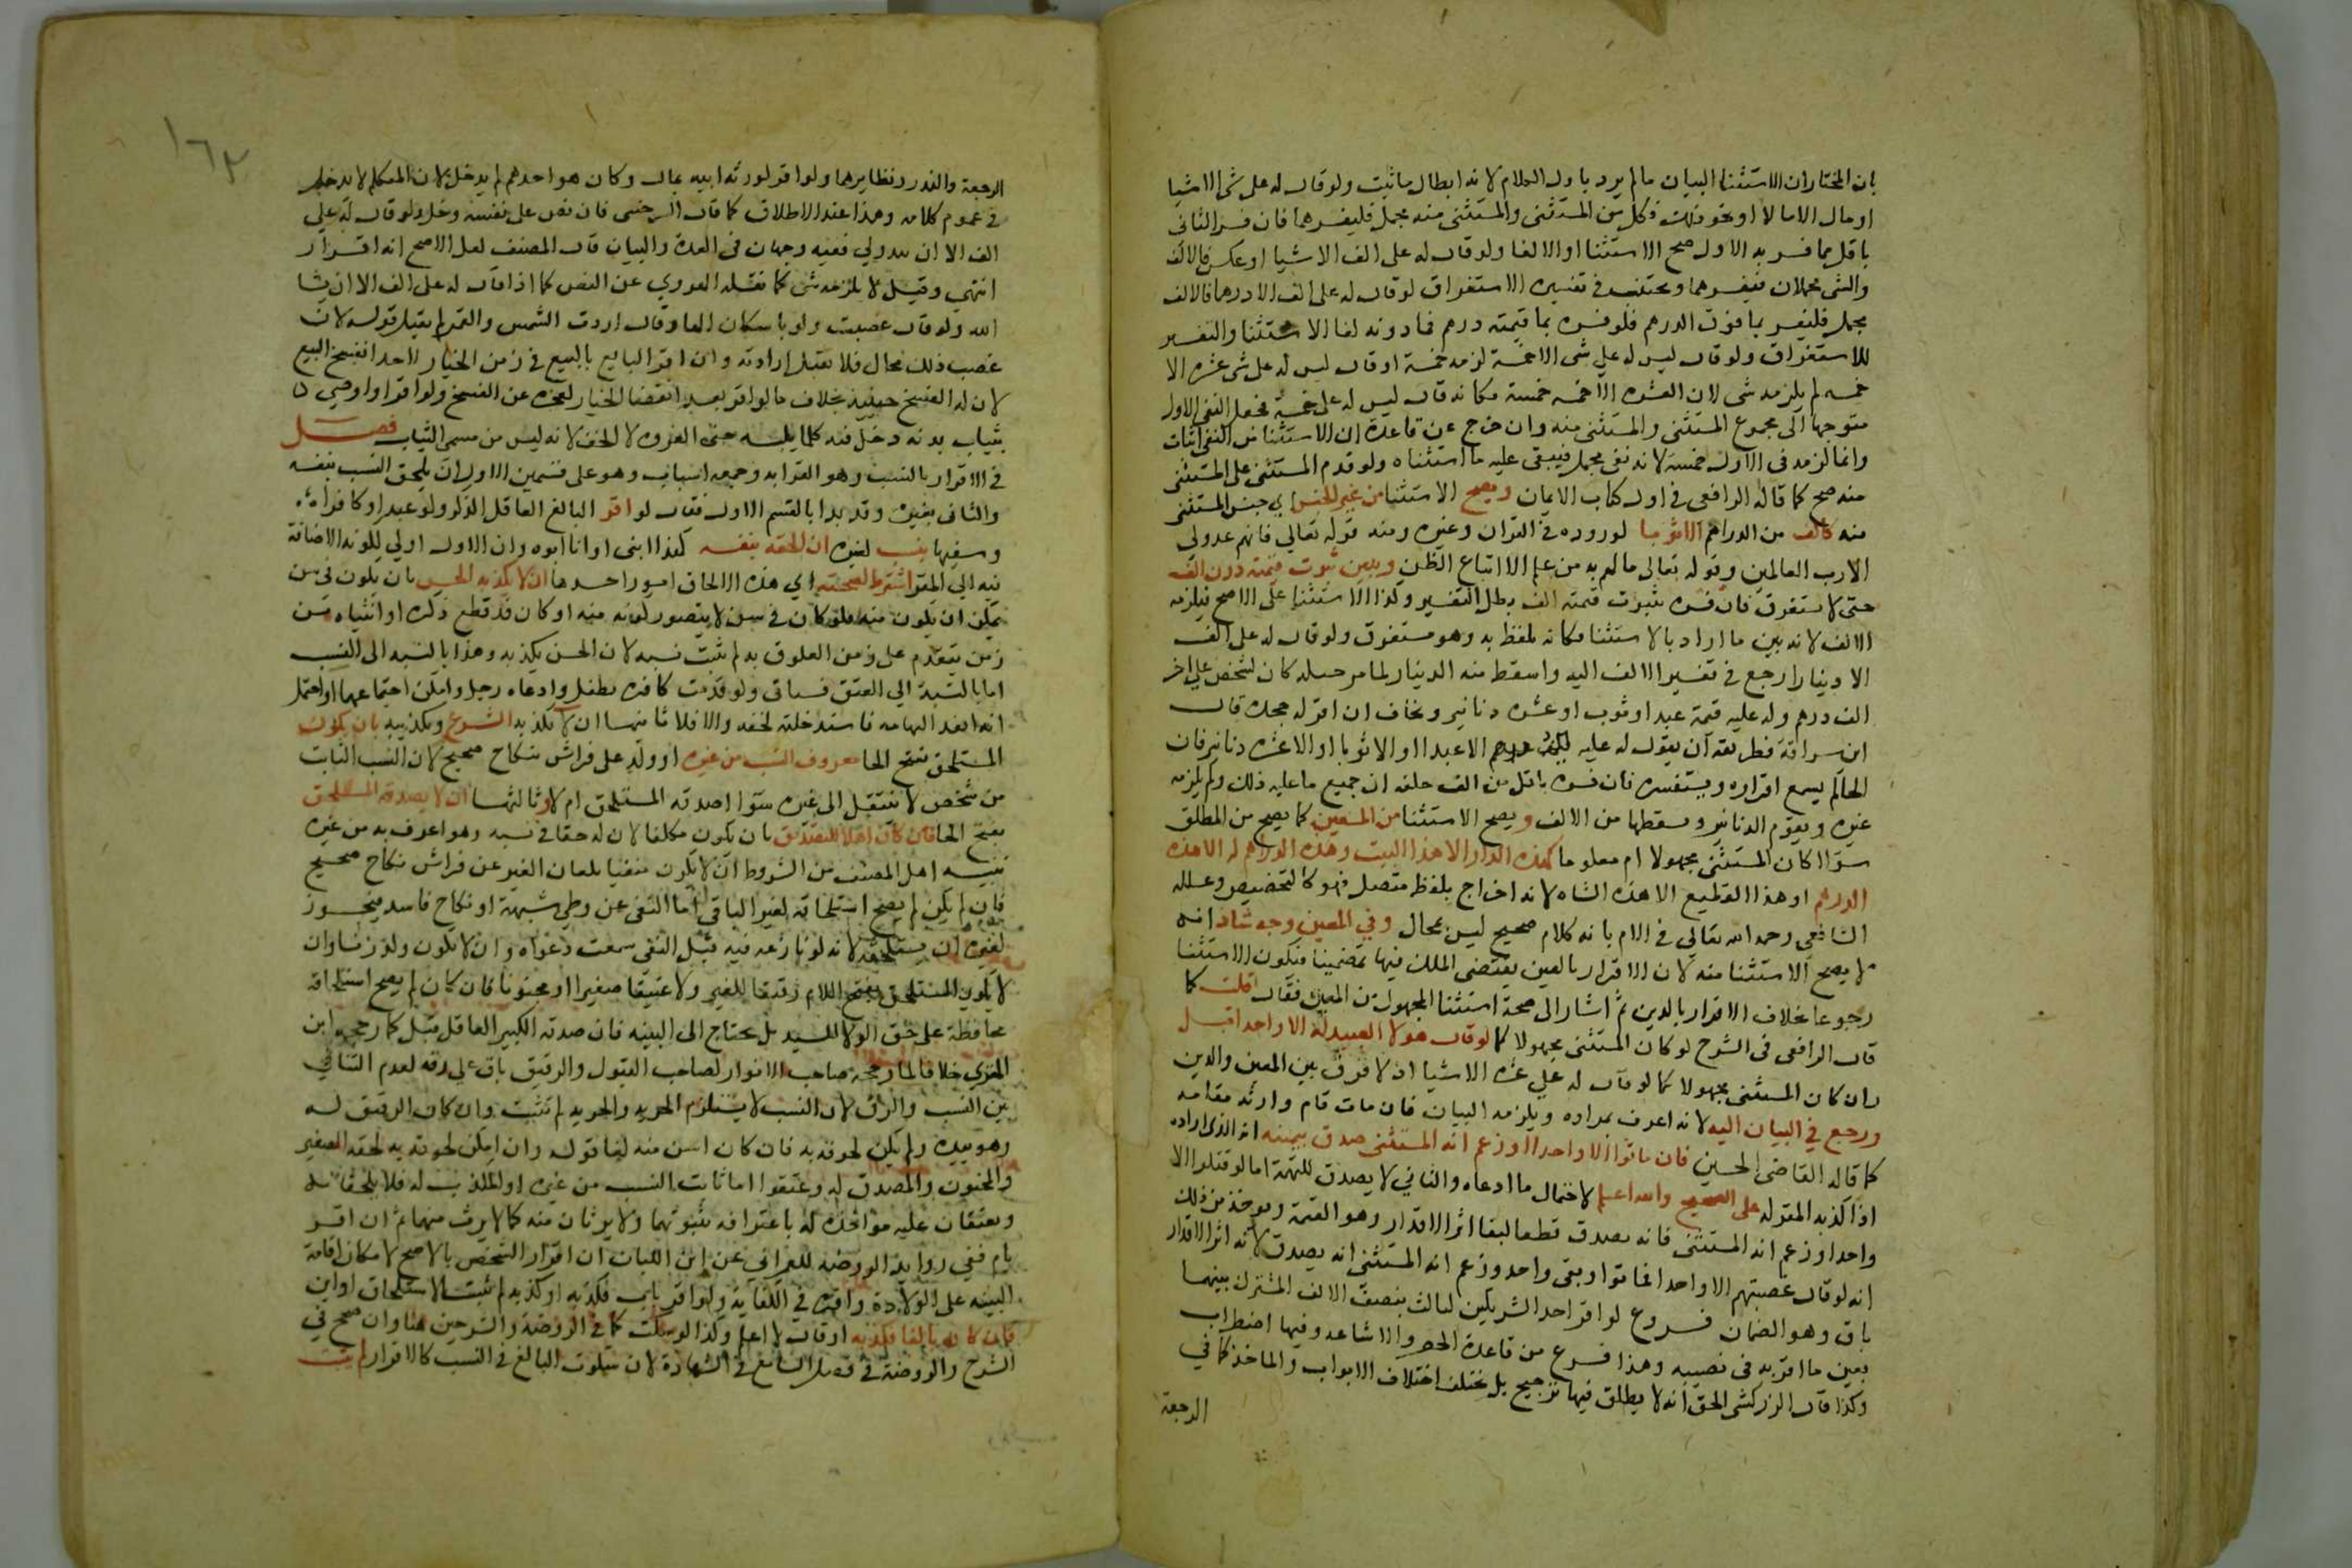 بان المختار ان الاستثنا البيان ما لم يرد باول الكلام لانه ابطال ما ثبت ولو قال له علي شي الا شيا
او مال الا مالا او نحو ذلك فكل من المستثنى والمستثنى منه مجمل فليفسرهما فان فسر الثاني
باقل مما فسر به الاول صح الاستثنا او الا لغا ولو قال له على الف الا شيا او عكس فالالف
والشي مجملان فيفسرهما ويجتنب في تفسيره الاستغراق لو قال له على الف الا درهما فالالف
مجمل فليفسر بما فوق الدرهم فلو فسره بما قيمته درهم فما دونه لغا الاستثنا والتفسير
للاستغراق ولو قال ليس له علي شي الا خمسة لزمه خمسة او قال ليس له علي شي عشره الا
خمسه لم يلزمه شي لان العشره الا خمسه خمسة فكانه قال ليس له على خمسة فجعل النفي الاول
متوجها الى مجموع المستثنى والمستثنى منه وان خرج عن قاعدة ان الاستثنا من النفي اثبات
وانما لزمه في الاول خمسة لانه نفي مجمل فيبقى عليه ما استثناه ولو قدم المستثنى على المستثنى
منه صح كما قاله الرافعي في اول كتاب الايمان ويصح الاستثنا من غير الجنس اي جنس المستثنى
منه كالف من الدراهم الا ثوبا لوروده في القران وغيره ومنه قوله تعالى فانهم عدو لي
الا رب العالمين وقوله تعالى ما لهم به من علم الا اتباع الظن ويبين بثوب قيمته دون الف
حتى لا يستغرق فان فسره بثوب قيمته الف بطل التفسير وكذا الاستثنا على الاصح فيلزمه
الالف لانه بين ما اراد بالاستثنا فكانه تلفظ به وهو مستغرق ولو قال له على الف
الا دينارا رجع في تفسير الالف اليه واسقط منه الدينار لما مر حيله كان لشخص على اخر
الف درهم وله عليه قيمة عبد او ثوب او عشره دنانير ويخاف ان اقر له جحده قال
ابن سراقة فطريقه ان يقول له عليه الف درهم الا عبدا او الا ثوبا او الا عشره دنانير فان
الحاكم يسمع اقراره ويستفسره فان فسره باقل من الف حلفه ان جميع ما عليه ذلك ولم يلزمه
غيره ويقوم الدنانير ويسقطها من الالف ويصح الاستثنا من المعين كما يصح من المطلق
سوا كان المستثنى مجهولا ام معلوما كهذه الدار الا هذا البيت وهذه الدراهم له الا هذه
الدراهم او هذا القطيع الا هذه الشاه لانه اخراج بلفظ متصل فهو كالتخصيص وعلله
الشافعي رحمه الله تعالى في الام بانه كلام صحيح ليس بمحال وفي المعين وجه شاذ انه
لا يصح الاستثنا منه لان الاقرار بالعين يقتضي الملك فيها تضمينا فيكون الاستثنا
رجوعا بخلاف الاقرار بالدين ثم اشار الى صحة استثنا المجهول من المعين فقال قلت كما
قال الرافعي في الشرح لو كان المستثنى مجهولا كما لو قال هولا العبيد له الا واحد اقبل
وان كان المستثنى مجهولا كما لو قال له علي عشره الا شيا اذ لا فرق بين المعين والدين
ورجع في البيان اليه لانه اعرف بمراده ويلزمه البيان فان مات قام وارثه مقامه
كما قاله القاضي الحسين فان ماتوا الا واحدا وزعم انه المستثنى صدق بيمينه انه الذي اراده
اذا كذبه المقر له على الصحيح والله اعلم لاحتمال ما ادعاه والثاني لا يصدق للتهمة اما لو قتلوا الا
واحدا وزعم انه المستثنى فانه يصدق قطعا لبقا اثر الاقرار وهو القيمة ويوخذ من ذلك
انه لو قال غصبتهم الا واحدا فماتوا وبقى واحد وزعم انه المستثنى انه يصدق لانه اثر الاقرار
باق وهو الضمان فروع لو اقر احد الشريكين لثالث بنصف الالف المشترك بينهما
يعين ما اقر به في نصيبه وهذا فرع من قاعدة الحصر والاشاعه وفيها اضطراب
وكذا قال الزركشي الحق انه لا يطلق فيها ترجيح بل يختلف اختلاف الابواب والماخذ كما في
الرجعة
١٦٣
الرجعة والنذر ونظايرهما ولو اقر لورثه ابيه بمال وكان هو احدهم لم يدخل لان المتكلم لا يدخل
في عموم كلامه وهذا عند الاطلاق كما قال السرخسي فان نص على نفسه دخل ولو قال له علي
الف الا ان يبدو لي ففيه وجهان في العدة والبيان قال المصنف لعل الاصح انه اقرار
انتهى وقيل لا يلزمه شي كما نقله الهروي عن النص كما اذا قال له على الف الا ان يشا
الله ولو قال غصبت داره ولو باسكان الها وقال اردت الشمس والقمر لم يقبل قوله لان
غصب ذلك محال فلا تقبل ارادته وان اقر البايع بالبيع في زمن الخيار لاحد انفسخ البيع
لان له الفسخ حينيذ بخلاف ما لو اقر بعد انقضا الخيار لعجزه عن الفسخ ولو اقر او اوصى له
بثياب بدنه دخل فيه كلما يلبسه حتى الفروه لا الخف لانه ليس من مسمى الثياب فصل
في الاقرار بالنسب وهو القرابه وجمعه انساب وهو على قسمين الاول ان يلحق النسب بنفسه
والثاني بغيره وقد بدا بالقسم الاول فقال لو اقر البالغ العاقل الذكر ولو عبدا او كافرا
وسفيها بنسب لغيره ان الحقه بنفسه كهذا ابني او انا ابوه وان الاول اولى لكونه الاضافة
فيه الى المقر اشترط لصحته اي هذه الالحاق امور احدها ان لا يكذبه الحس بان يكون في سن
يمكن ان يكون منه فلو كان في سن لا يتصور كونه منه او كان قد قطع ذكره او انثياه من
زمن يتقدم على زمن العلوق به لم يثبت نسبه لان الحس يكذبه وهذا بالنسبه الى النسب
اما بالنسبة الى العتق فسياتي ولو قدمت كافره بطفل وادعاه رجل وامكن اجتماعهما او احتمل
انه انفذ اليها مه فاستدخلته لحقه والا فلا ثانيهما ان لا يكذبه الشرع وتكذيبه بان يكون
المستلحق بفتح الحا معروف النسب من غيره او ولد على فراش نكاح صحيح لان النسب الثابت
من شخص لا ينتقل الى غيره سوا اصدقه المستلحق ام لا وثالثها ان لا يصدقه المستلحق
بفتح الحا فان كان اهلا للتصديق بان يكون مكلفا لان له حقا في نسبه وهو اعرف به من غيره
تنبيه اهمل المصنف من الشروط ان لا يكون منفيا بلعان الغير عن فراش نكاح صحيح
فان لم يكن لم يصح استلحاقه لغير النافي اما النفي عن وطي شبهة او نكاح فاسد فيجوز
لغيره ان يستلحقه لانه لو نازعه فيه قبل النفي سمعت دعواه وان لا يكون ولد زنا وان
لا يكون المستلحق بفتح اللام رقيقا للغير ولا عتيقا صغيرا او مجنونا فان كان لم يصح استلحاقه
محافظة على حق الولا للسيد بل يحتاج الى البينه فان صدقه الكبير العاقل قبل كما رجحه ابن
المقري خلافا لما رجحه صاحب الانوار لصاحب القبول والرقيق باق على رقه لعدم التنافي
بين النسب والرق لان النسب لا يستلزم الحريه والحريه لم تثبت وان كان الرقيق له
وهو بيده ولم يمكن لحوقه به فان كان اسن منه لغا قوله وان امكن لحوقه به لحقه الصغير
والمجنون والمصدق له وعتقوا اما ثابت النسب من غيره او المكذب له فلا يلحقانه
ويعتقان عليه مواخذه له باعترافه بثبوتهما ولا يرثان منه كما لا يرث منهما ثم ان اقر
بام ففي رواية الروضه للعمراني عن ابن اللبان ان اقرار الشخص بالام لا يصح لامكان اقامة
البينه على الولادة واقره في الكفاية ولو اقر باب فكذبه او كذبه لم يثبت الاستلحاق او ابن
فان كان بالغا فكذبه او قال لا اعلم وكذا لو سكت كما في الروضة والشرحين هنا وان صحح في
الشرح والروضة في فصل التسامع في الشهادة لان سكوت البالغ في النسب كالاقرار لم يثبت